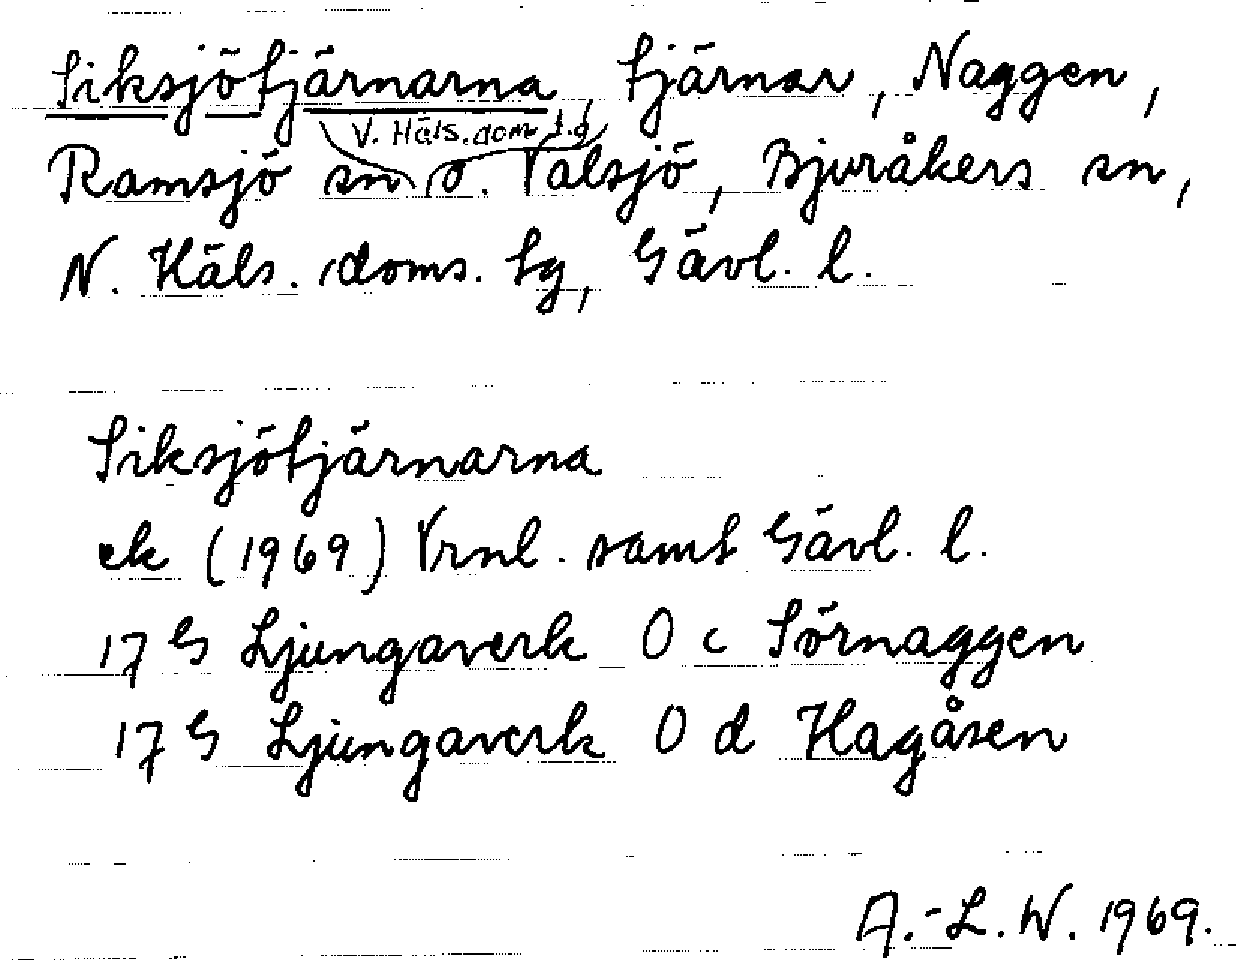 Siksjötjärnarna, tjärnar, Naggen,
V. Häls. dom t.g
Ramsjö sn o. Valsjö, Bjuråkers sn,
N. Häls. doms. tg, Gävl. l.
Siksjötjärnarna
ek (1969) Vrnl. samt Gävl. l.
17 G Ljungaverk 0 c Sörnaggen
17 G Ljungaverk 0 d Hagåsen
A.-L. W. 1969.